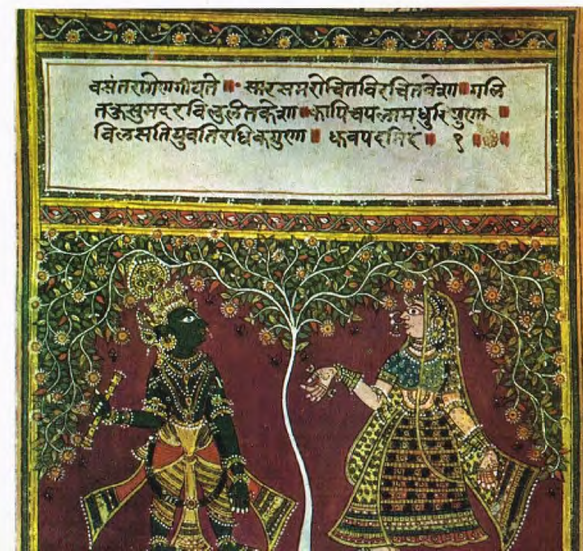 वसंतरागेणगीयते ॥ स्मरसमरोचितविरचितवेशा ॥ गलि
तकुसुमदरविलुलितकेशा ॥ कापिचपलामधुरिपुणा ॥
विलसतियुवतिरधिकगुणा ॥ १ ॥